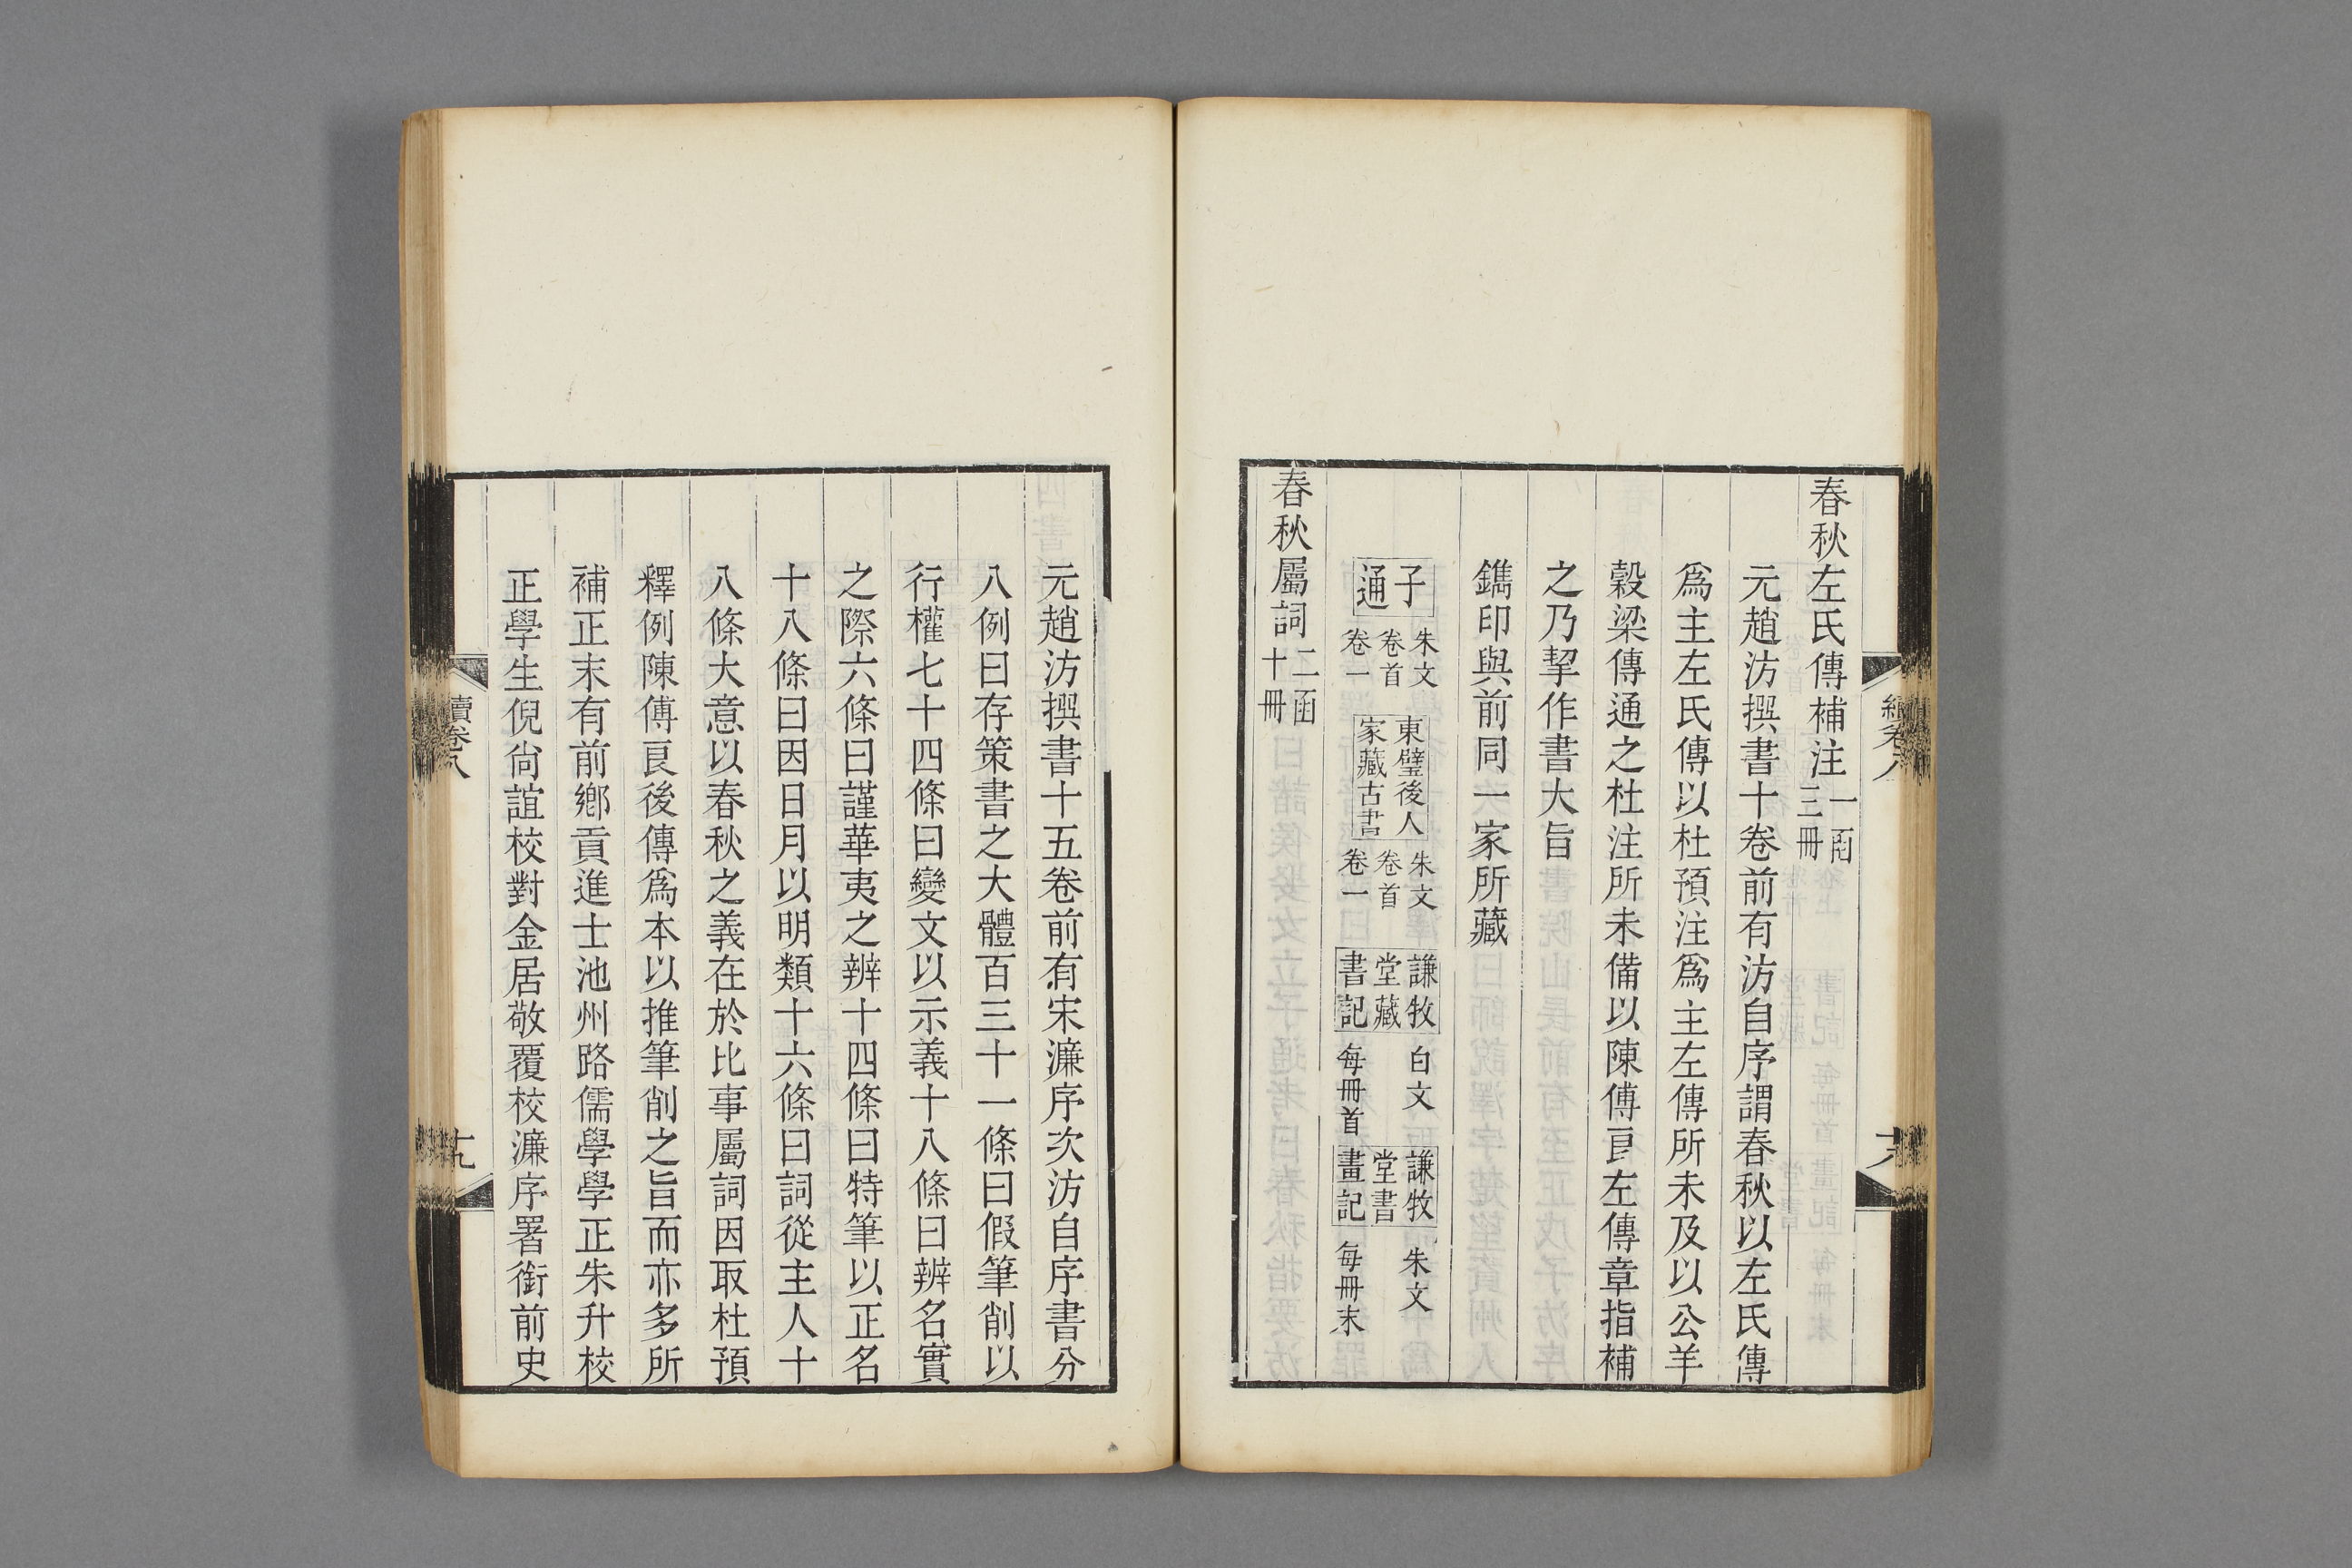 春秋左氏傳補注一函三冊
元趙汸撰書十卷前有汸自序謂春秋以左氏傳
爲主左氏傳以杜預注爲主左傳所未及以公羊
穀梁傳通之杜注所未備以陳傅良左傳章指補
之乃挈作書大旨
鐫印與前同一家所藏
子通 朱文卷首卷一 東璧後人家藏古書 朱文卷首卷一 謙牧堂藏書記 白文每冊首 謙牧堂書畫記 朱文每冊末
春秋屬詞二函十冊
元趙汸撰書十五卷前有宋濂序次汸自序書分
八例曰存策書之大體百三十一條曰假筆削以
行權七十四條曰變文以示義十八條曰辨名實
之際六條曰謹華夷之辨十四條曰特筆以正名
十八條曰因日月以明類十六條曰詞從主人十
八條大意以春秋之義在於比事屬詞因取杜預
釋例陳傅良後傳爲本以推筆削之旨而亦多所
補正末有前鄉貢進士池州路儒學學正朱升校
正學生倪尙誼校對金居敬覆校濂序署銜前史
續卷八
十九